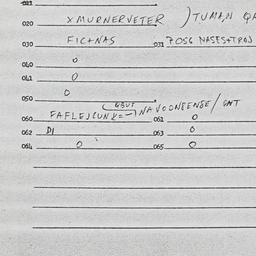 021
020 XMURNERVETER ) TUMAN QA
030 FIC+NAS 031 7OSG NASES+TROJ
040 0
041 0
050 0
GBUT
060 FAFLEJCUNK=-) NAVOONEENSE/ GNT
061 0
062 DI 063 0
064 0 065 0